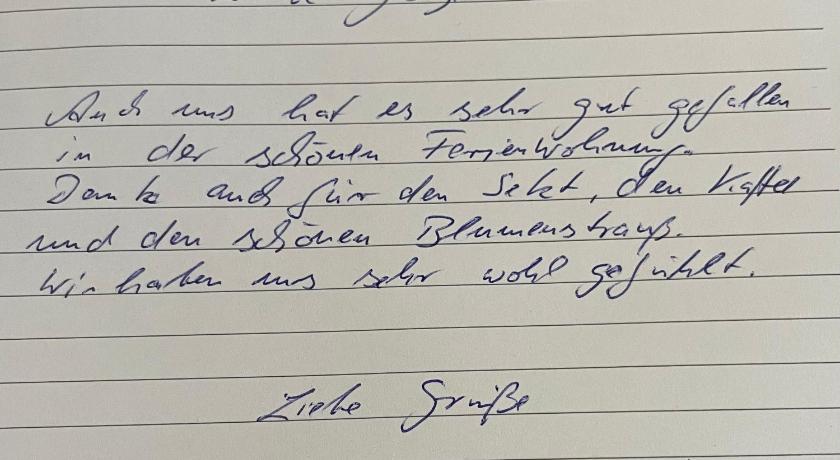 Auch uns hat es sehr gut gefallen
in der schönen Ferienwohnung.
Danke auch für den Sekt, den Kaffee
und den schönen Blumenstrauß.
Wir haben uns sehr wohl gefühlt.
Liebe Grüße